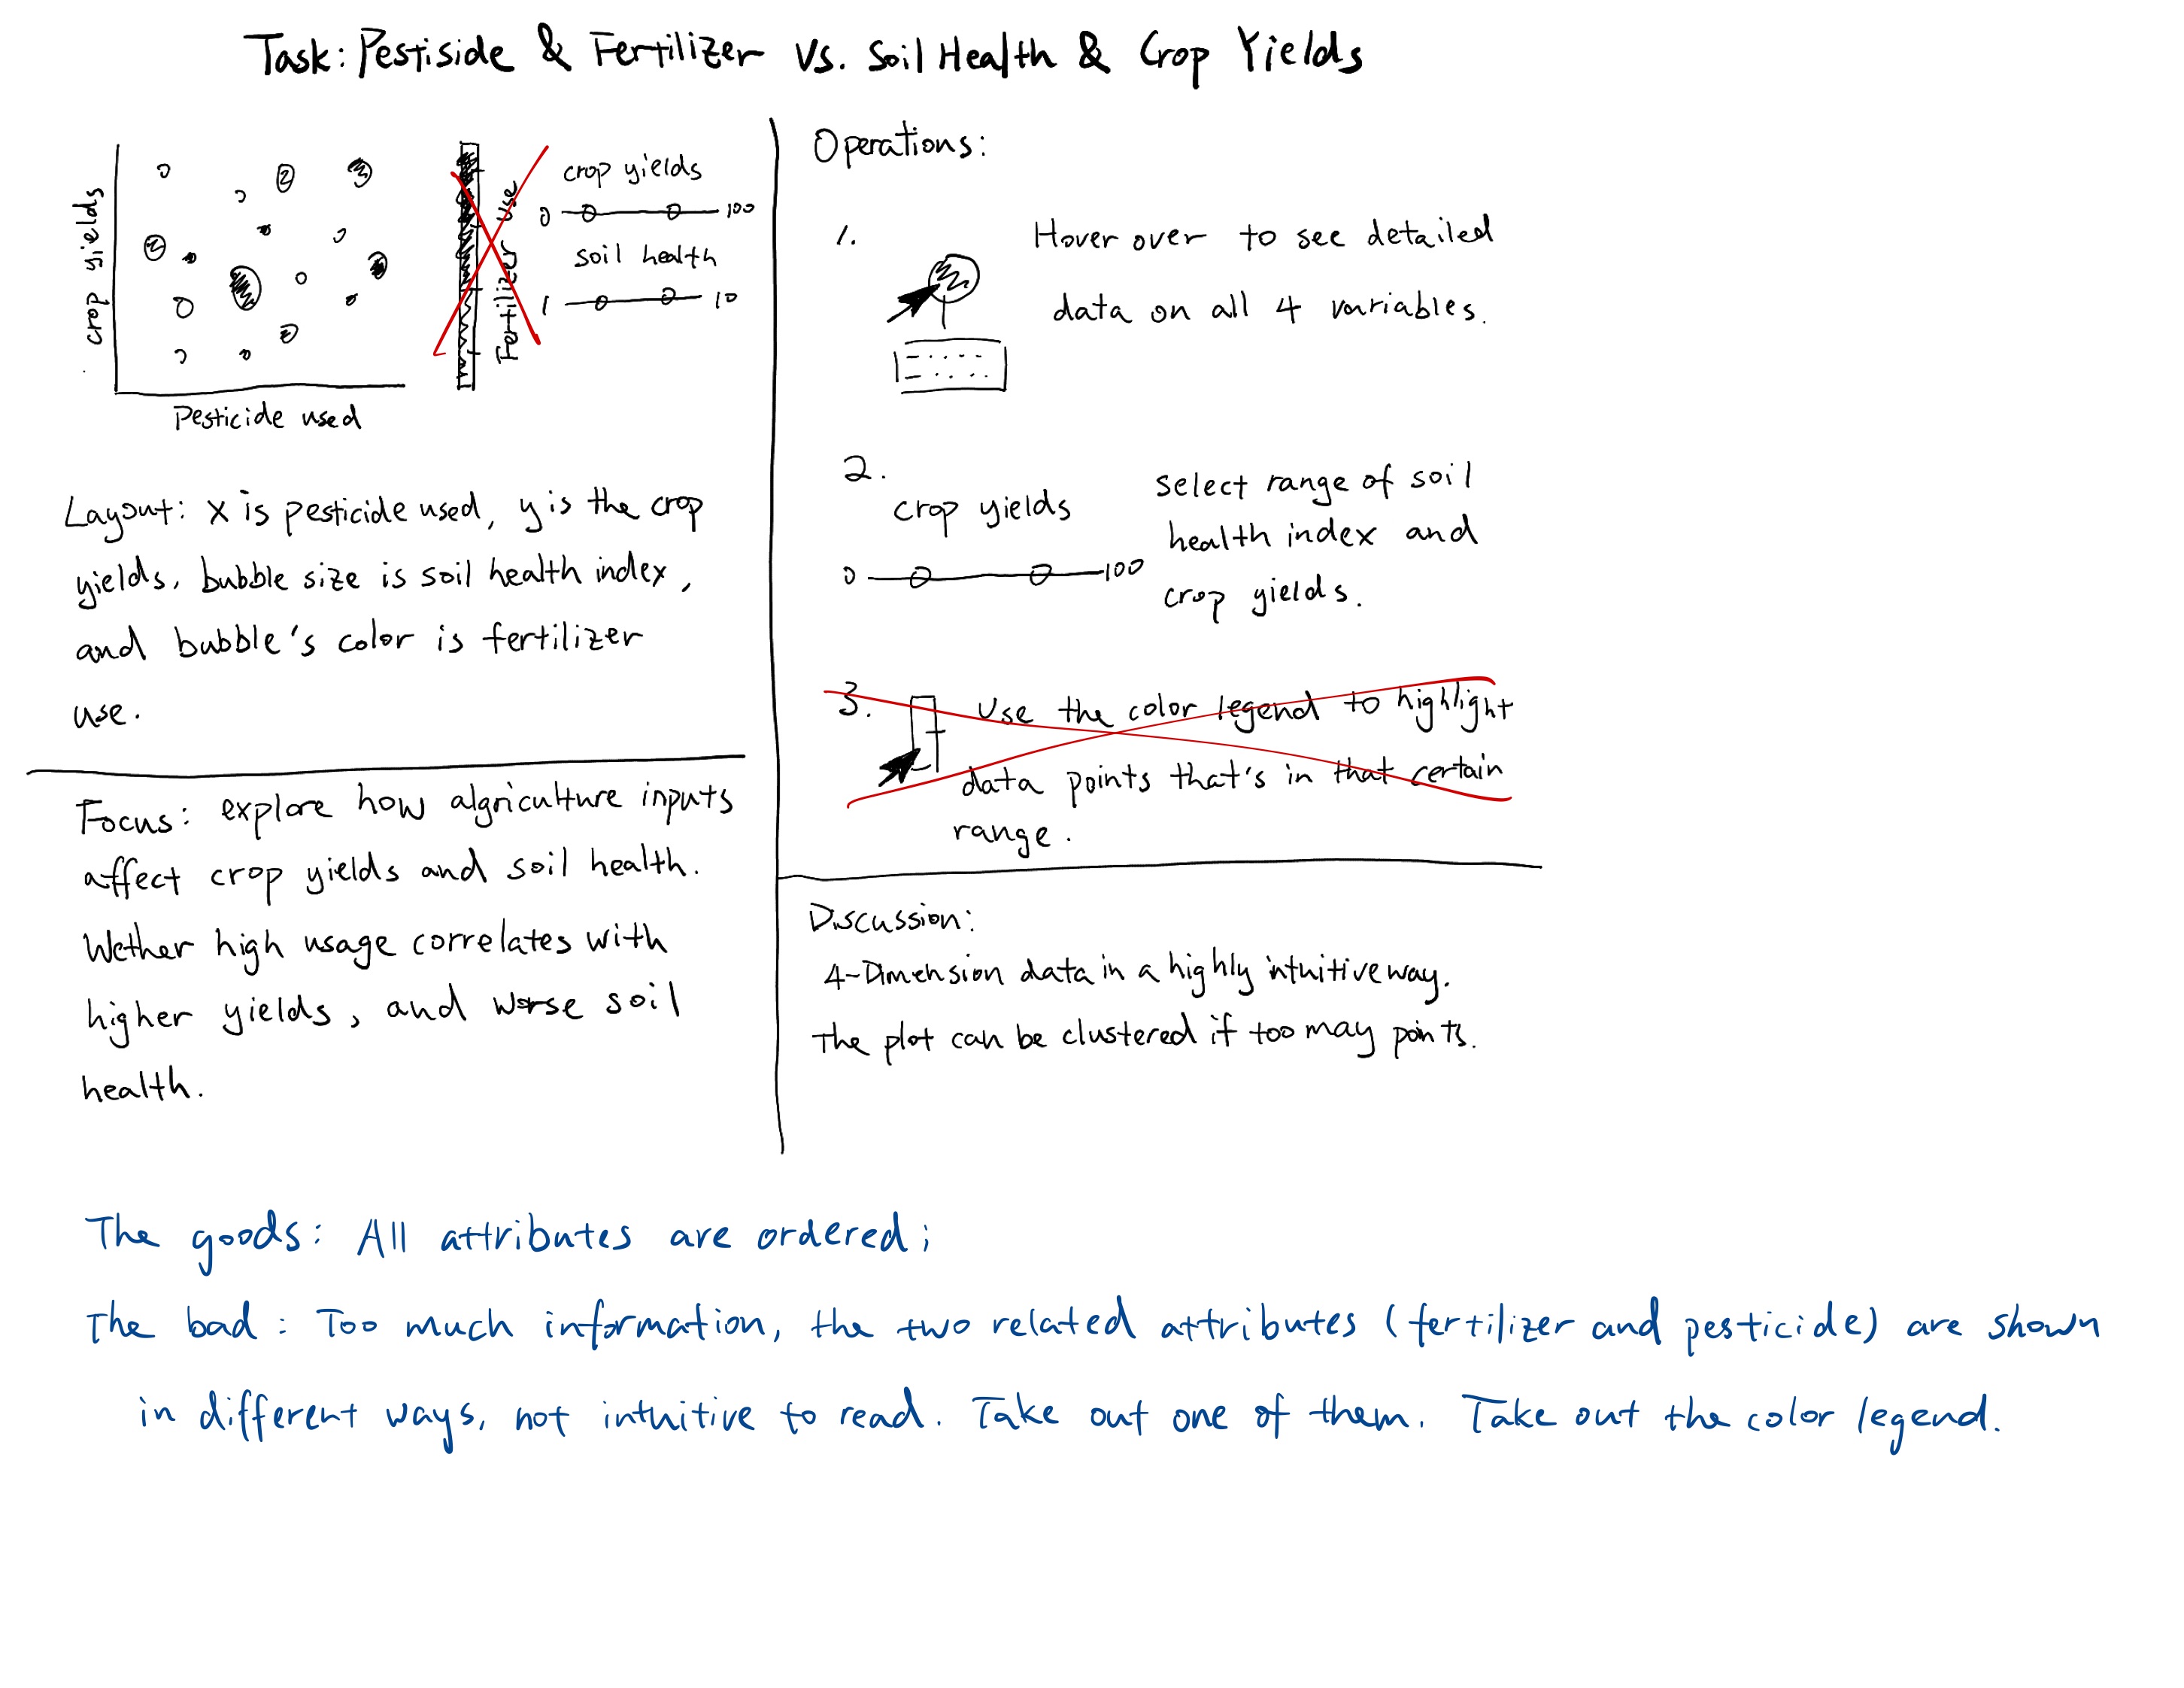 Task: Pestiside & Fertilizer vs. Soil Health & Crop Yields
crop yields
Pesticide used
Fertilizer use
crop yields
0 100
soil health
1 10
Layout: x is pesticide used, y is the crop
yields, bubble size is soil health index,
and bubble's color is fertilizer
use.
Focus: explore how algriculture inputs
affect crop yields and soil health.
Wether high usage correlates with
higher yields, and worse soil
health.
Operations:
1. Hover over to see detailed
data on all 4 variables.
2.
crop yields
0 100
select range of soil
health index and
crop yields.
3. Use the color legend to highlight
data points that's in that certain
range.
Discussion:
4-Dimension data in a highly intuitive way.
The plot can be clustered if too may points.
The goods: All attributes are ordered;
The bad: Too much information, the two related attributes (fertilizer and pesticide) are shown
in different ways, not intuitive to read. Take out one of them. Take out the color legend.